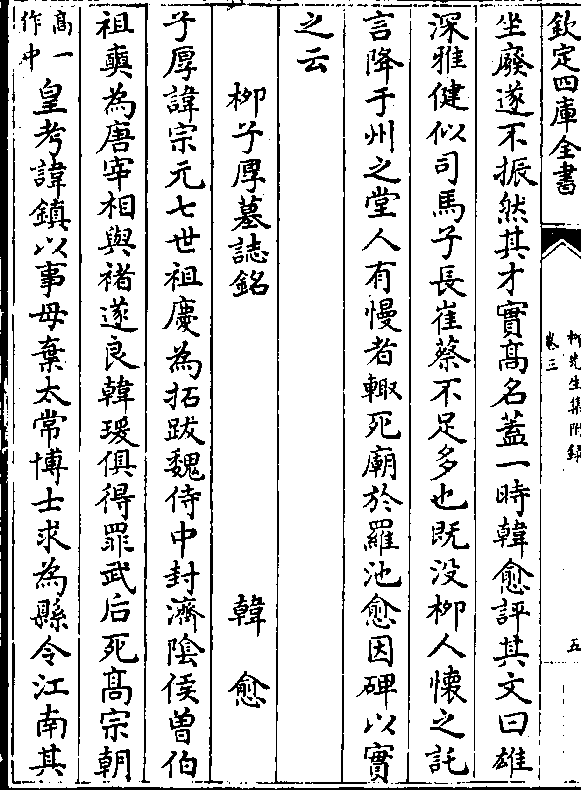 欽定四庫全書
柳先生集附録
卷三
五
坐廢遂不振然其才實髙名蓋一時韓愈評其文曰雄
深雅健似司馬子長崔蔡不足多也既没柳人懷之託
言降于州之堂人有慢者輙死廟於羅池愈因碑以實
之云
柳子厚墓誌銘
韓愈
子厚諱宗元七世祖慶為拓跋魏侍中封濟陰侯曽伯
祖奭為唐宰相與褚遂良韓瑗俱得罪武后死髙宗朝
髙一
作中
皇考諱鎮以事母棄太常博士求為縣令江南其